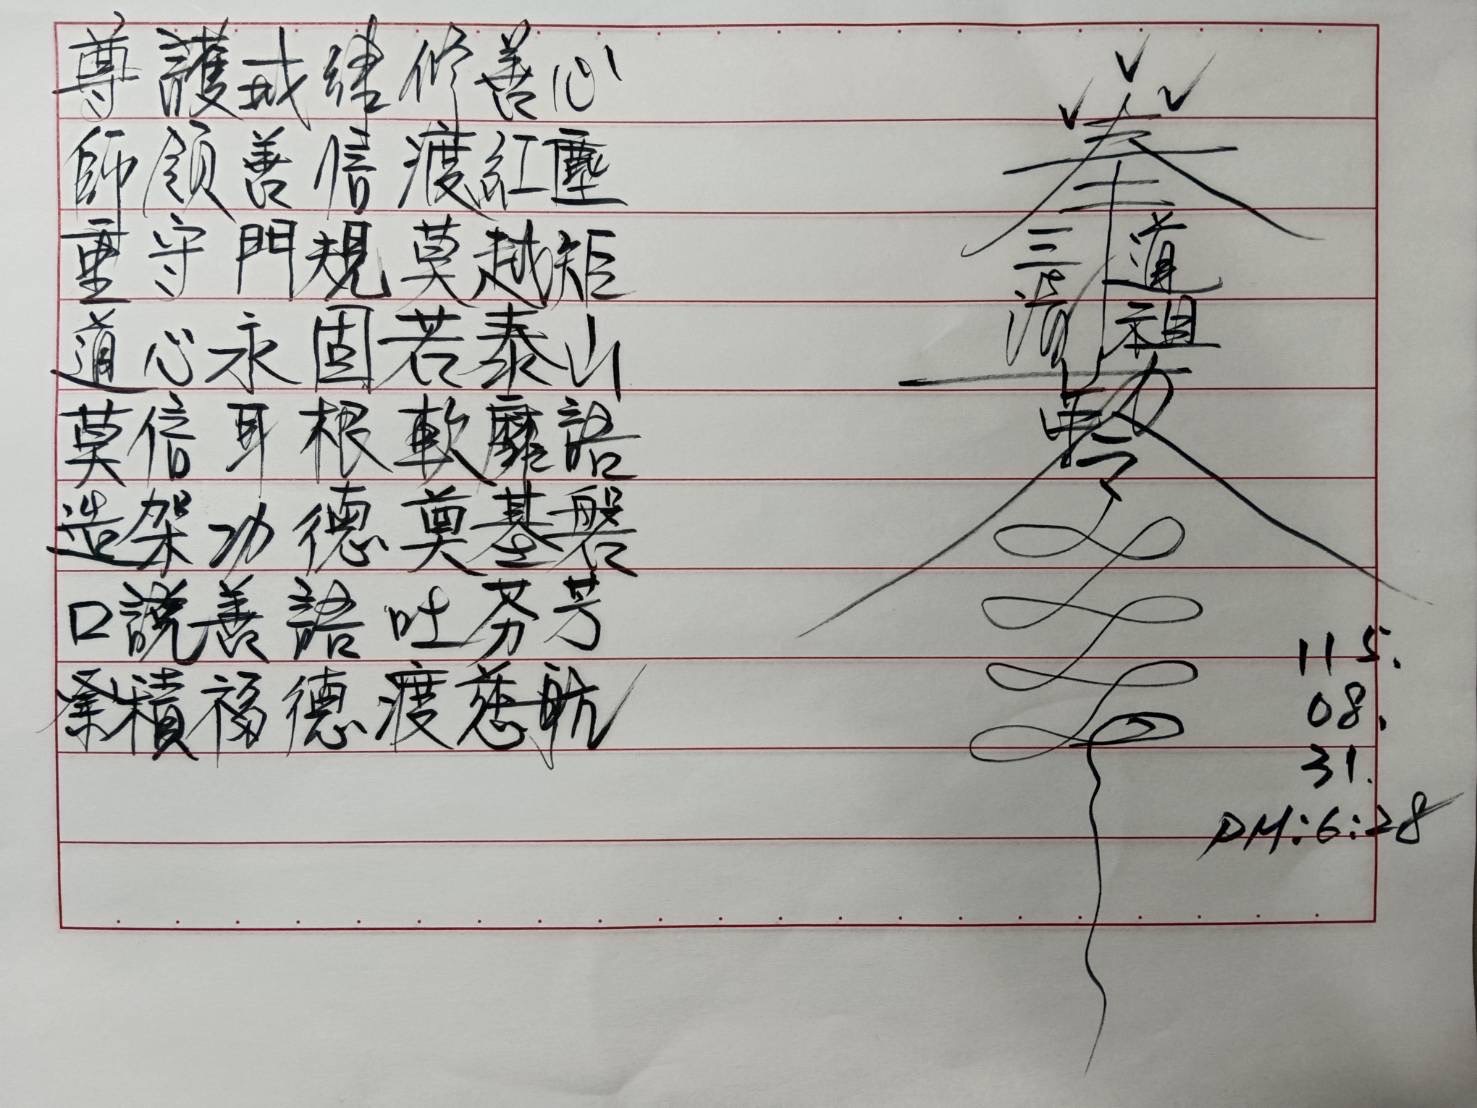 尊護戒律修善心
師領善信渡紅塵
重守門規莫越矩
道心永固若泰山
莫信耳根軟靡語
造架功德奠基磐
口說善語吐芬芳
累積福德渡慈航
奉
三清道祖
勅令
115.
08.
31.
PM:6:28